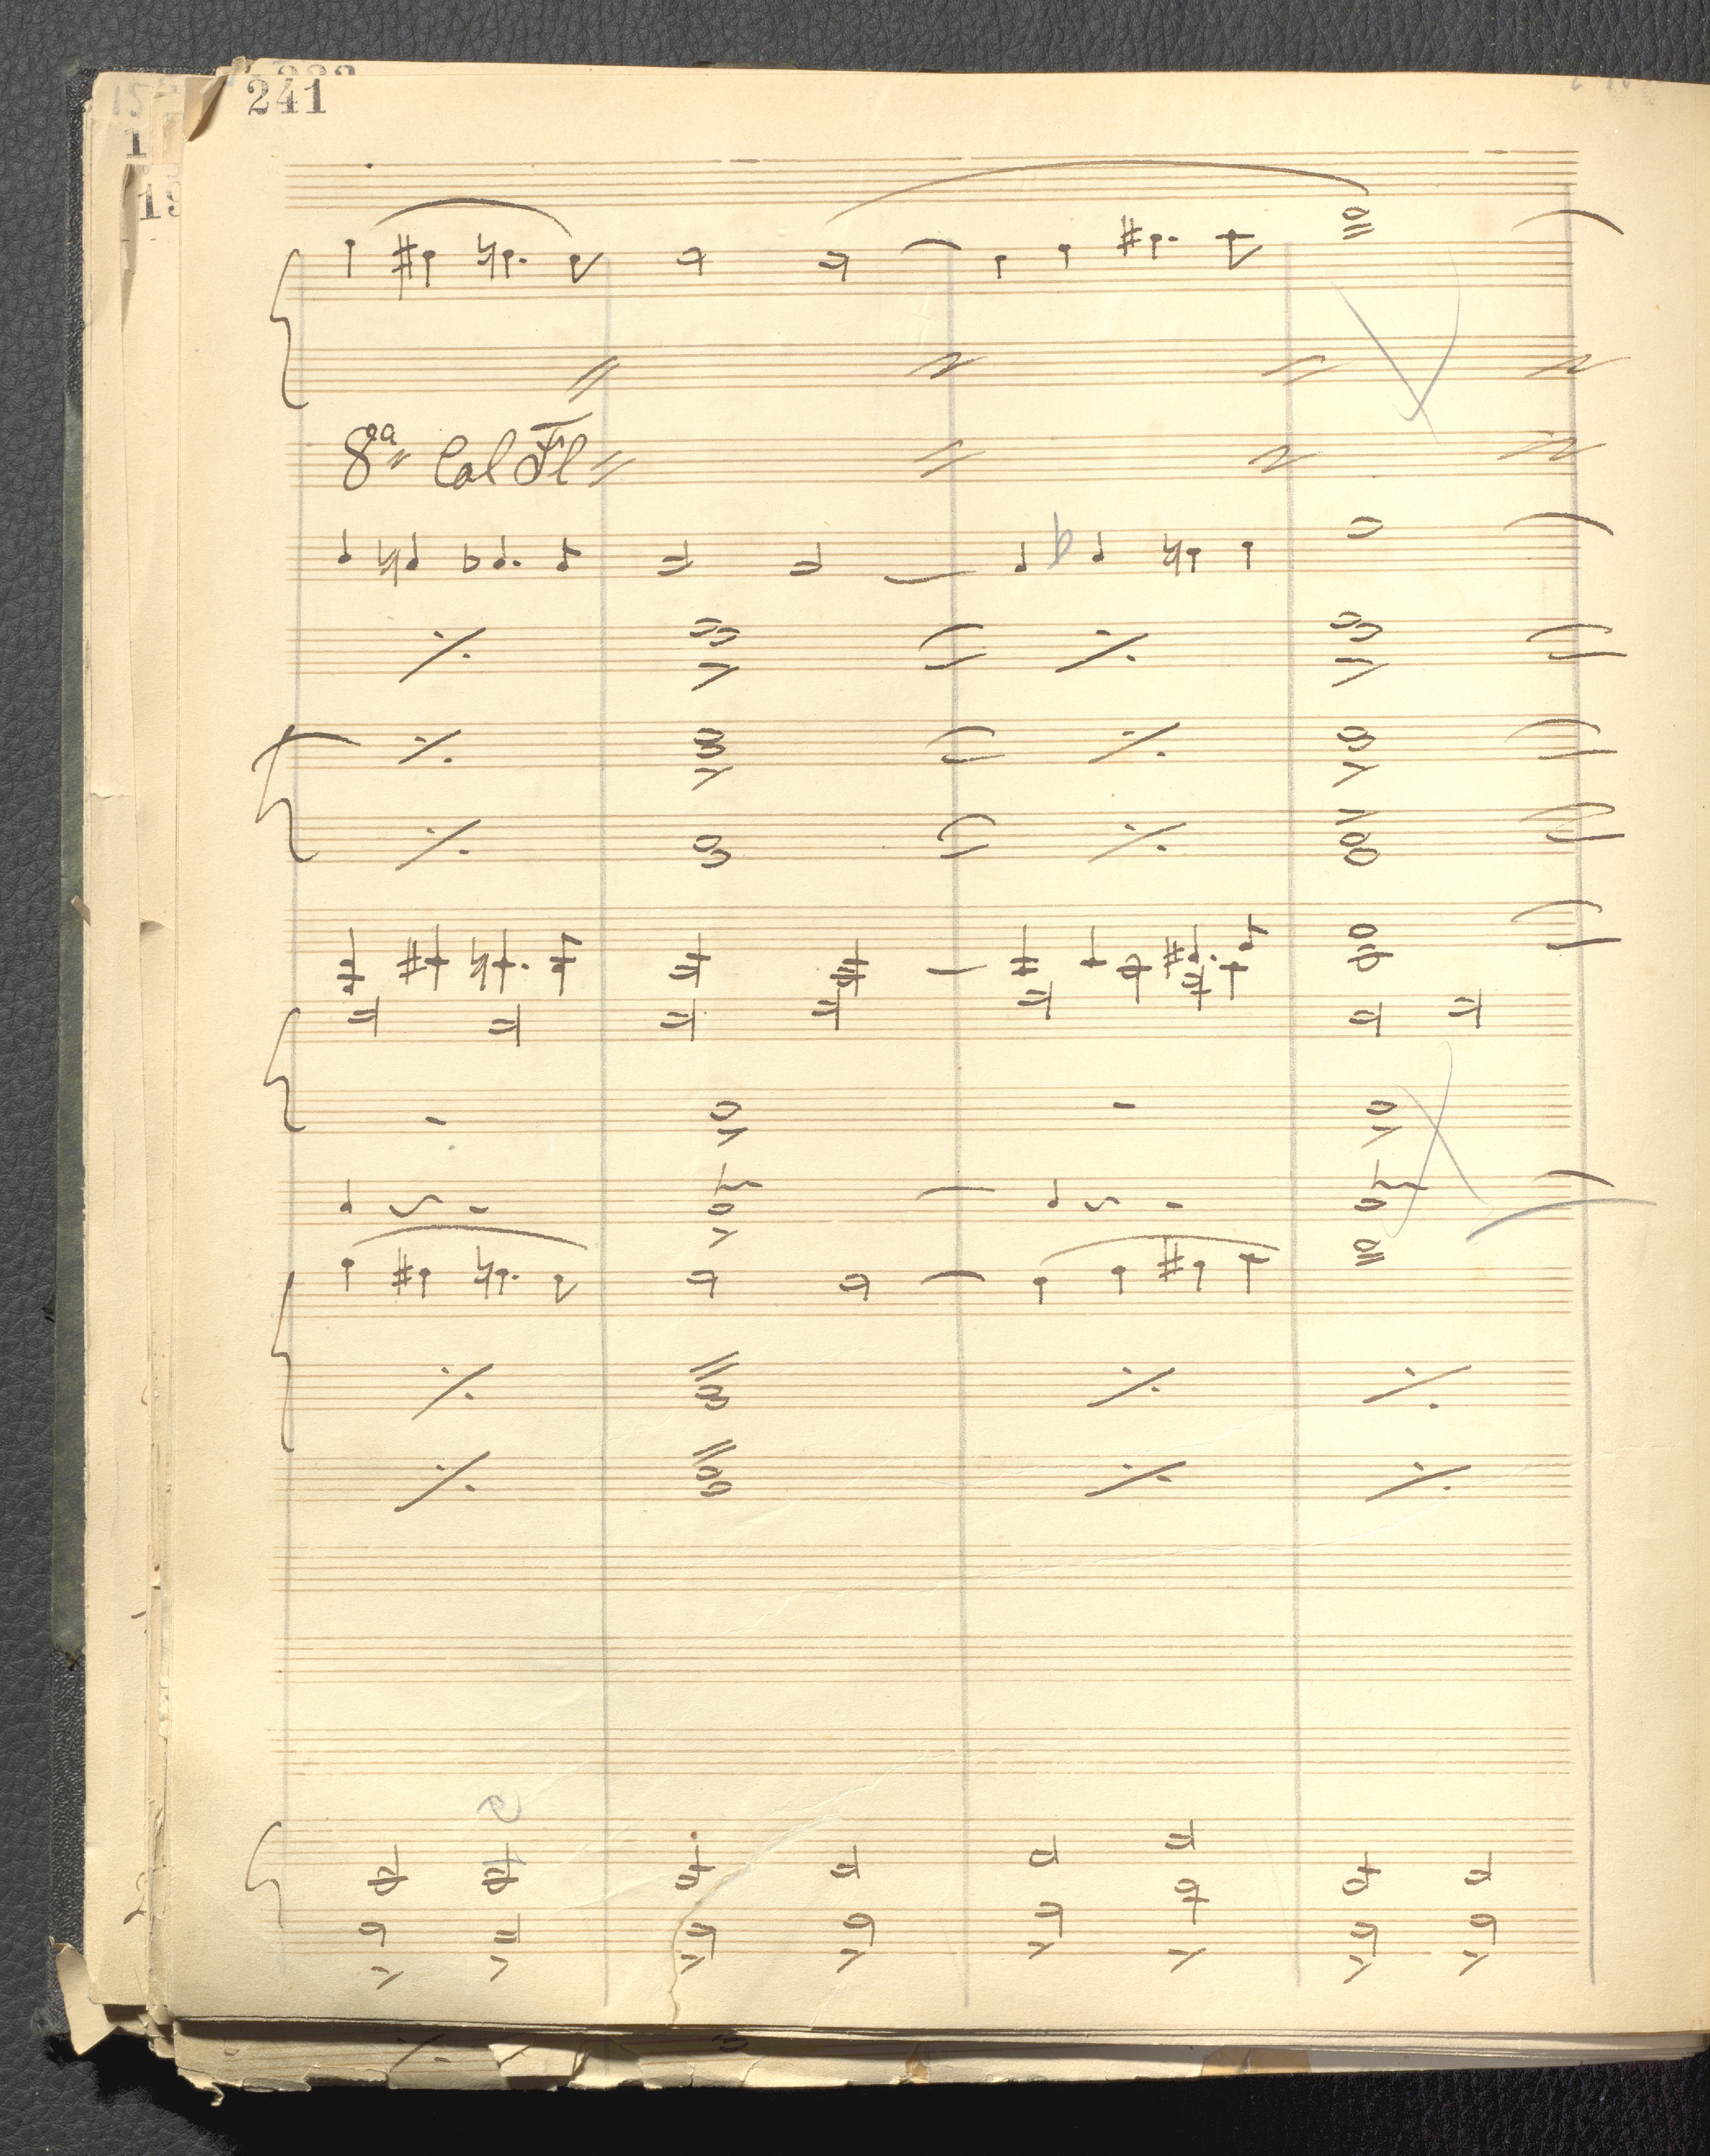 241
8va Col Fl